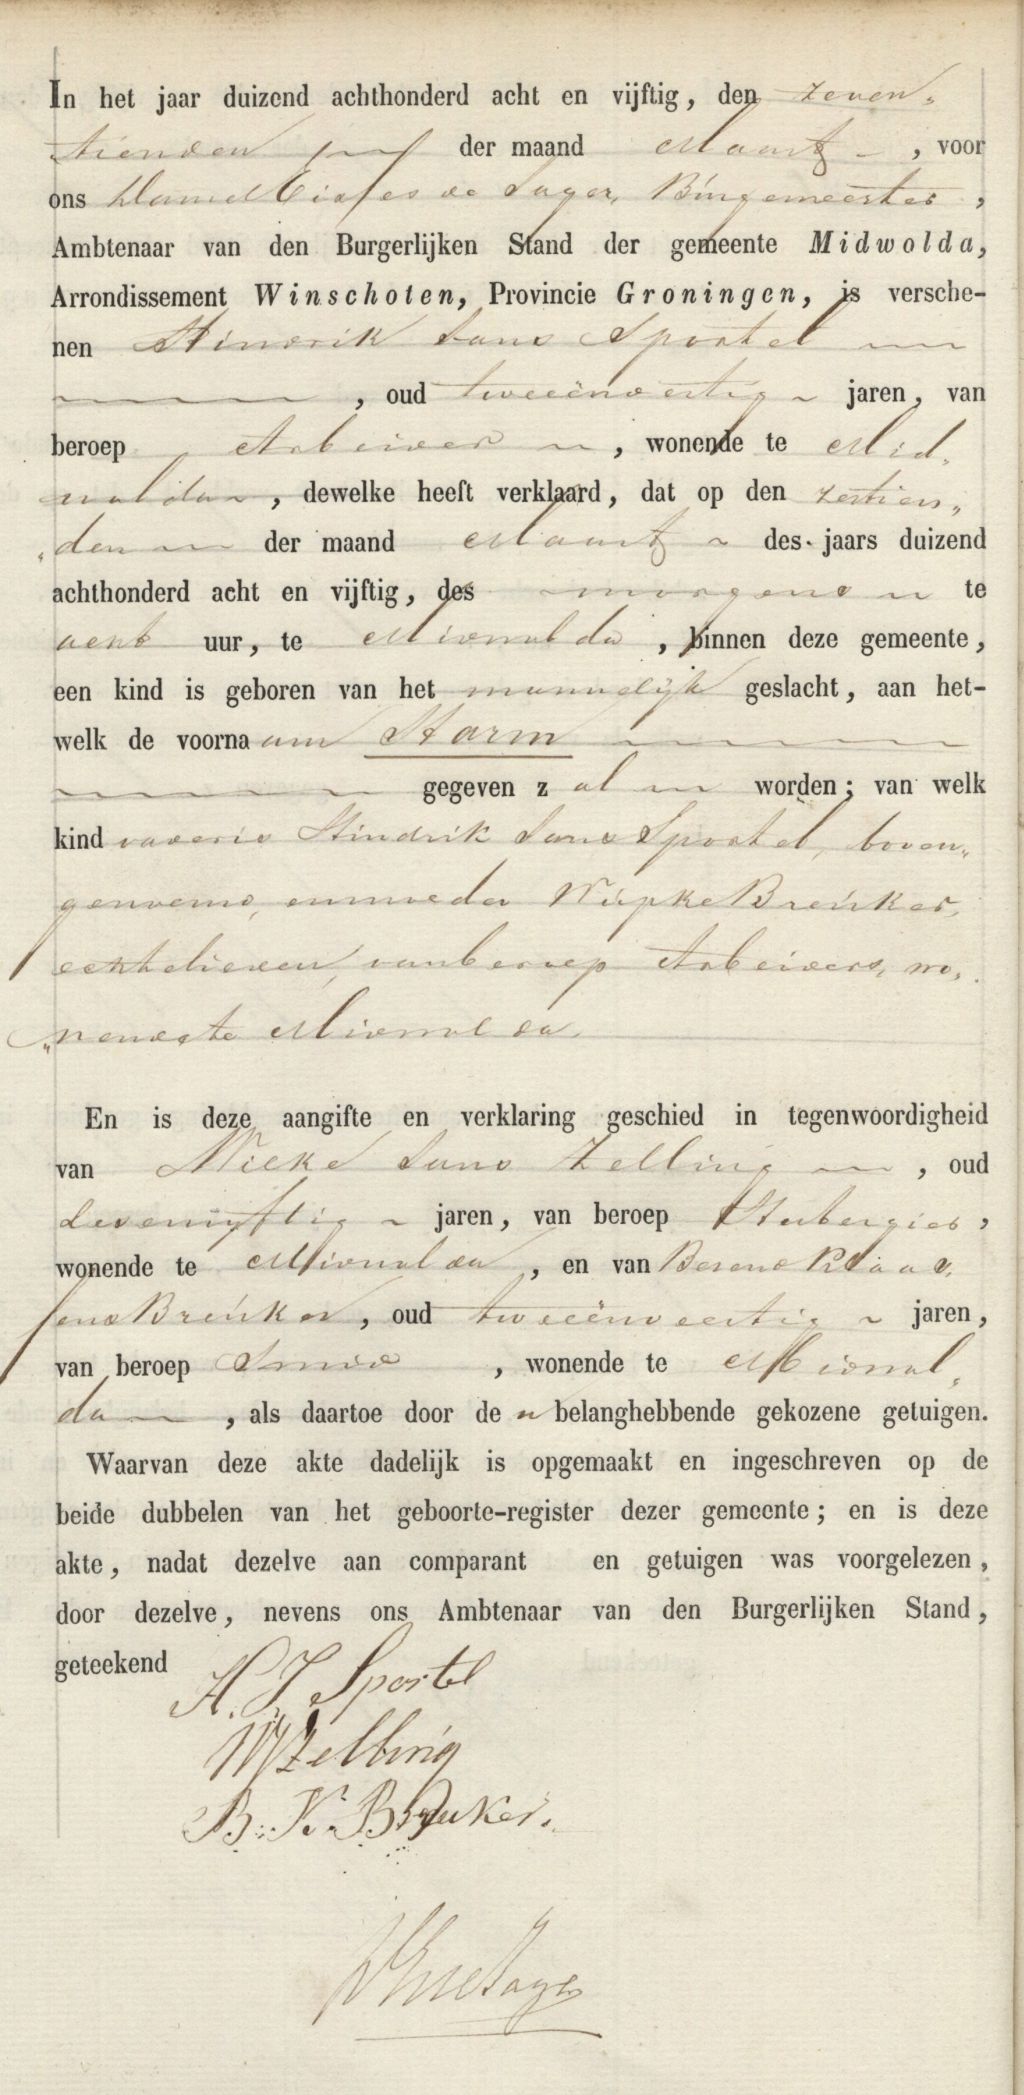 In het jaar duizend achthonderd acht en vijftig, den zeven„
tienden der maand Maart, voor
ons Eisses de Sager, Burgemeester,
Ambtenaar van den Burgerlijken Stand der gemeente Midwolda,
Arrondissement Winschoten, Provincie Groningen, is versche-
nen Hindrik Jans Sportel
, oud tweeënveertig jaren, van
beroep Arbeider, wonende te Mid„
wolda, dewelke heeft verklaard, dat op den zestien„
„den der maand Maart des jaars duizend
achthonderd acht en vijftig, des morgens te
acht uur, te Midwolda, binnen deze gemeente,
een kind is geboren van het mannelijk geslacht, aan het-
welk de voornaam Harm
gegeven zal worden; van welk
kind vader is Hindrik Jans Sportel, boven„
genoemd, en moeder Wupke Breuker,
echtelieden, van beroep Arbeiders, wo„
„nende te Midwolda.
En is deze aangifte en verklaring geschied in tegenwoordigheid
van Mieke Jans Zelling, oud
zevenvijftig jaren, van beroep Herbergier,
wonende te Midwolda, en van Berend Klaas„
sens Breuker, oud tweeënveertig jaren,
van beroep Smid, wonende te Midwol„
da, als daartoe door de belanghebbende gekozene getuigen.
Waarvan deze akte dadelijk is opgemaakt en ingeschreven op de
beide dubbelen van het geboorte-register dezer gemeente; en is deze
akte, nadat dezelve aan comparant en getuigen was voorgelezen,
door dezelve, nevens ons Ambtenaar van den Burgerlijken Stand,
geteekend
H. J. Sportel
M J Zelling
B. K. Breuker.
DE de Sager